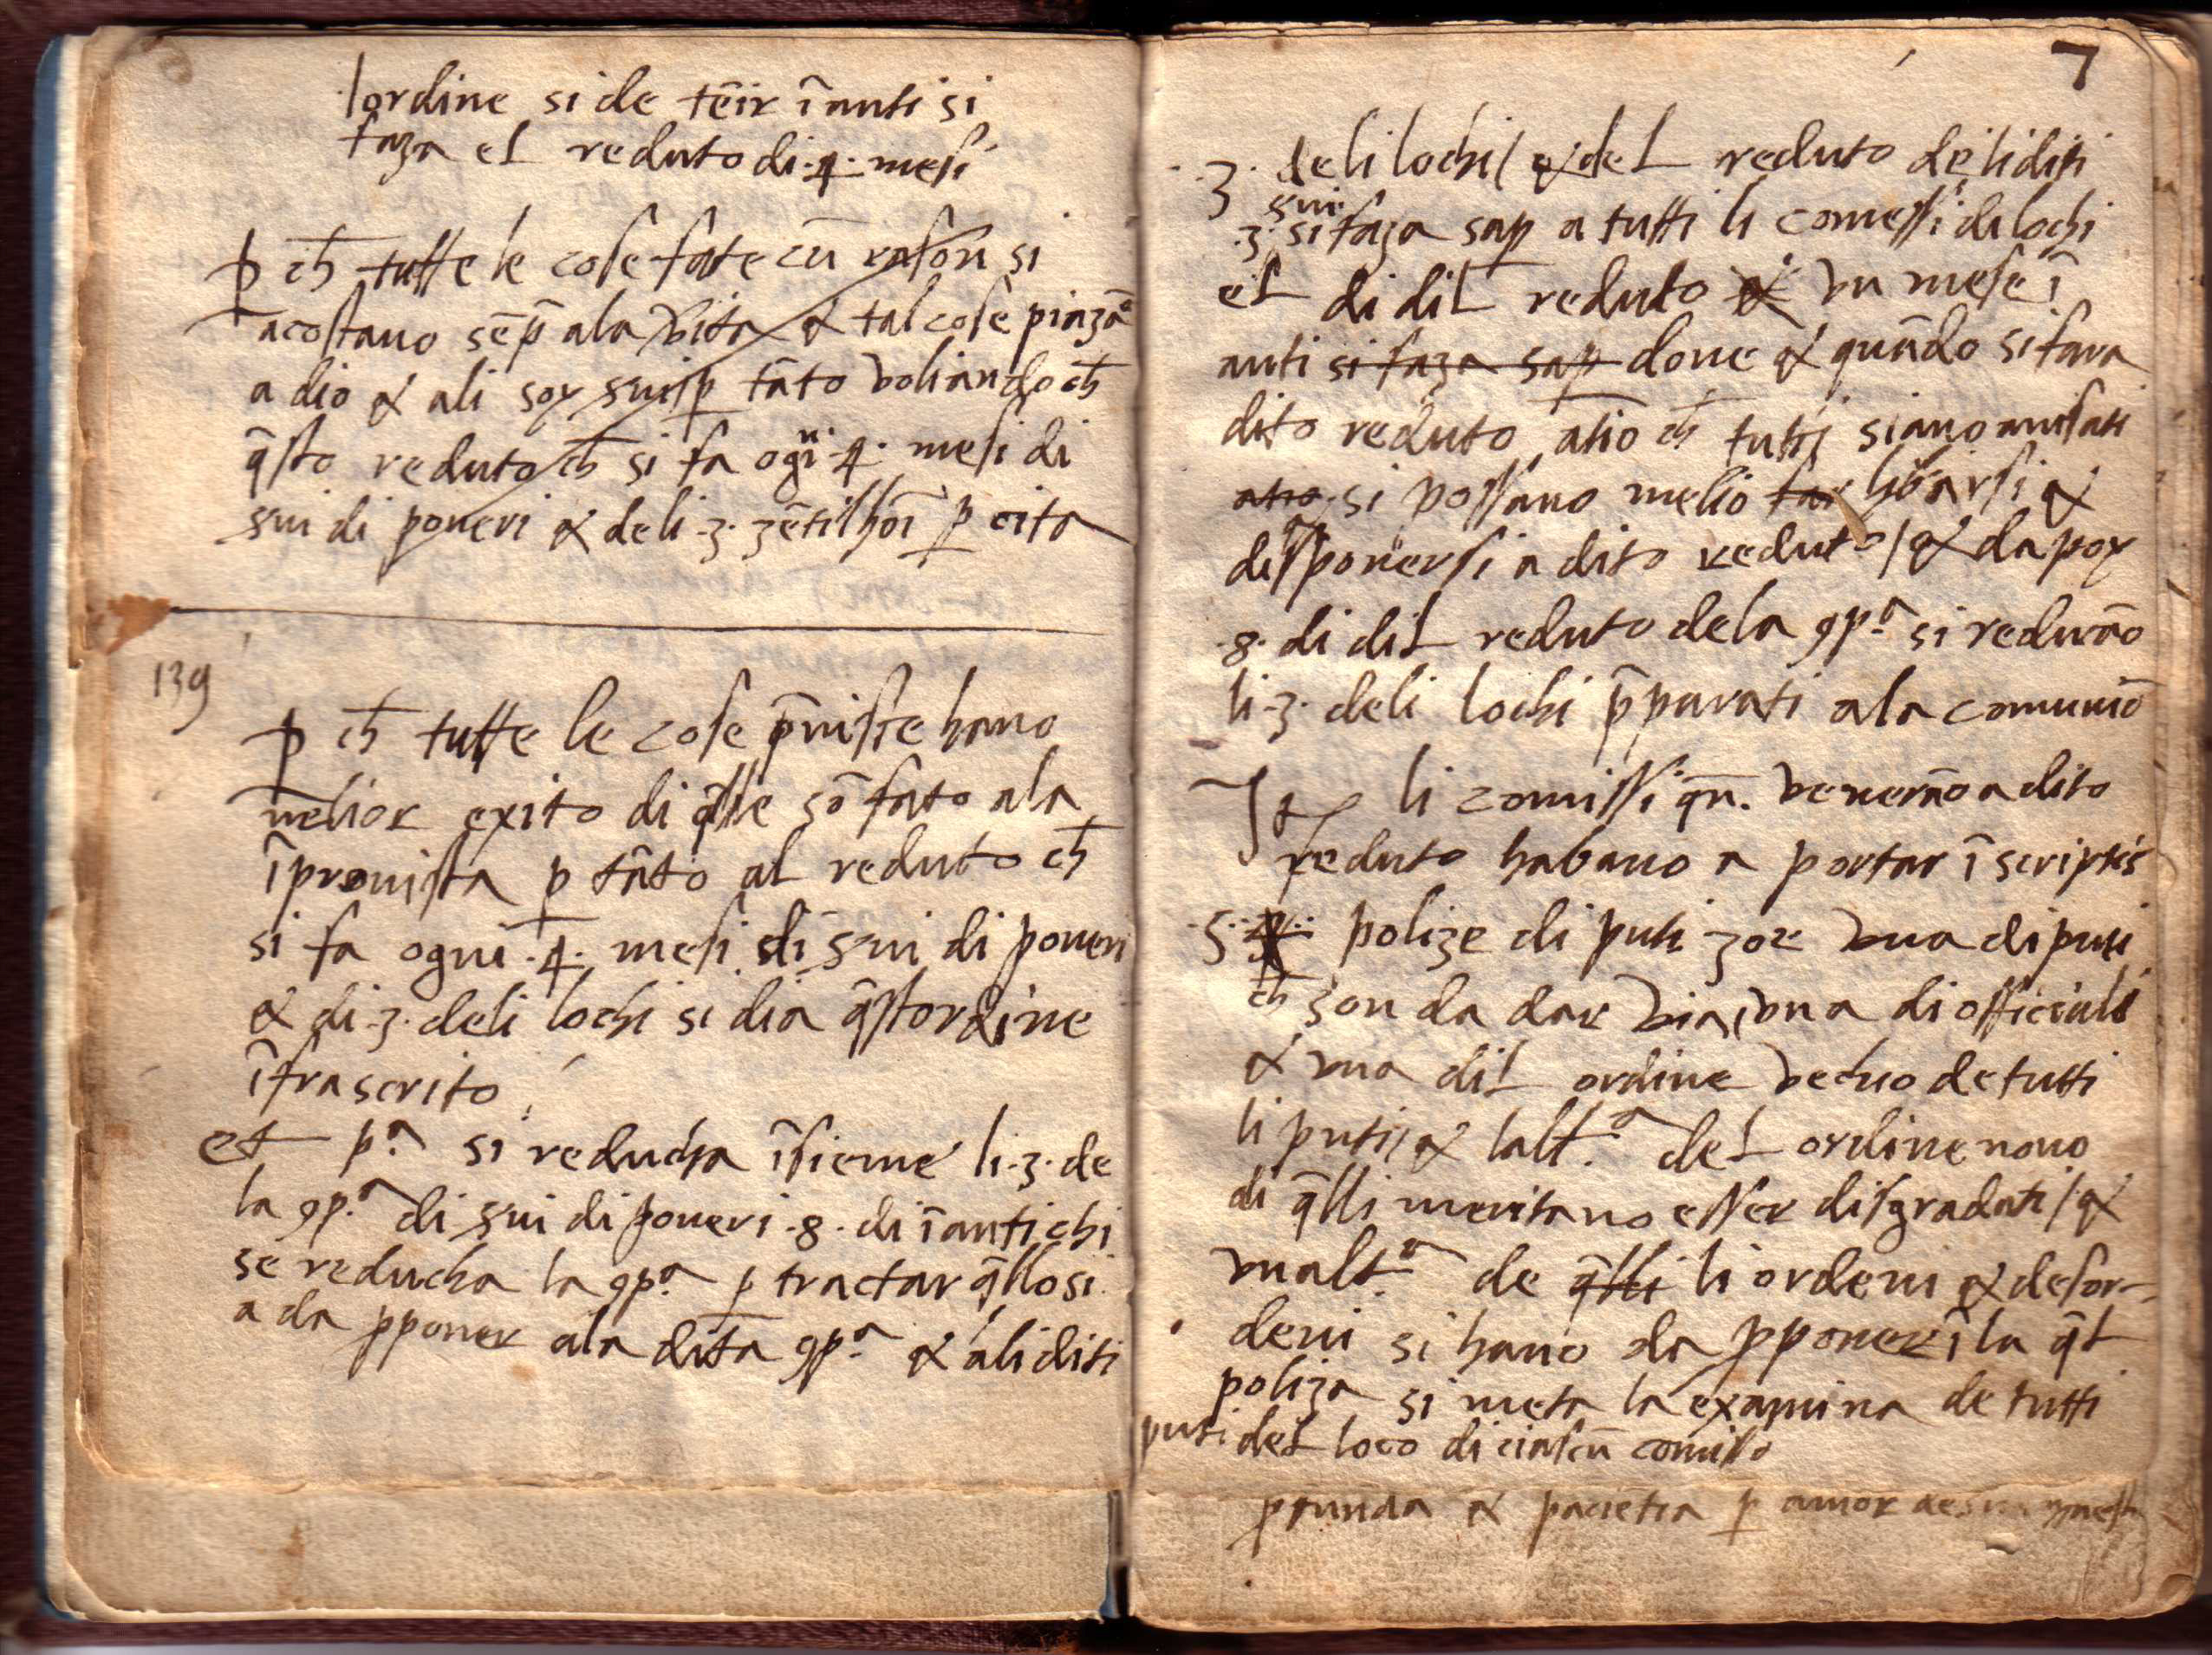 lordine si de tēir īanti si
faza el reduto di .4. mesi
p ch tutte le cose fate cū rasōn si
acostano sēp ala vita & tal cose piazā
a dio & ali soy suisp tāto voliando ch
q̄sto reduto ch si fa ogni .4. mesi di
sui di poueri & deli .3. zētilhoī p cita
139
p ch tutte le cose p̄uiste hano
melior exito di q̄lle sō fato ala
īprouista p tāto al reduto ch
si fa ogni .4. mesi di sui di poueri
& di .3. deli lochi si dia q̄stordine
īfrascrito
et pª si reducha īsieme li .3. de
la 9pª di sui di poueri .8. di īanti chi
se reducha la 9pª p tractar q̄llo si
a da pponer ala dita 9pª & ali diti
7
.3. deli lochi / & del reduto de li diti
sui
.3. si faza sap a tutti li comessi di lochi
el di dil reduto & vn mese ī
anti si faza sap doue & quādo si fara
dito reduto atio ch tutti siano auisati
atio si possano melio far libārsi &
disponersi a dito reduto / & da poy
.8. di dil reduto dela 9pª si redurāo
li .3. deli lochi p̄parati ala comuniō
It li comissi qn̄. venerāo a dito
reduto habano a portar ī scriptis
.5. .4. polize di puti zoe vna di puti
ch son da dar via, vna di officiali
& vna dil ordine vechio de tutti
li puti, & laltª del ordine nouo
di q̄lli meritano esser disgradati / &
vnaltª de q̄lli li ordeni & desor-
deni si hano da pponer ī la q̄l
poliza si meta la examina de tutti
puti del loco di ciascū comisso
& paciētia p amor